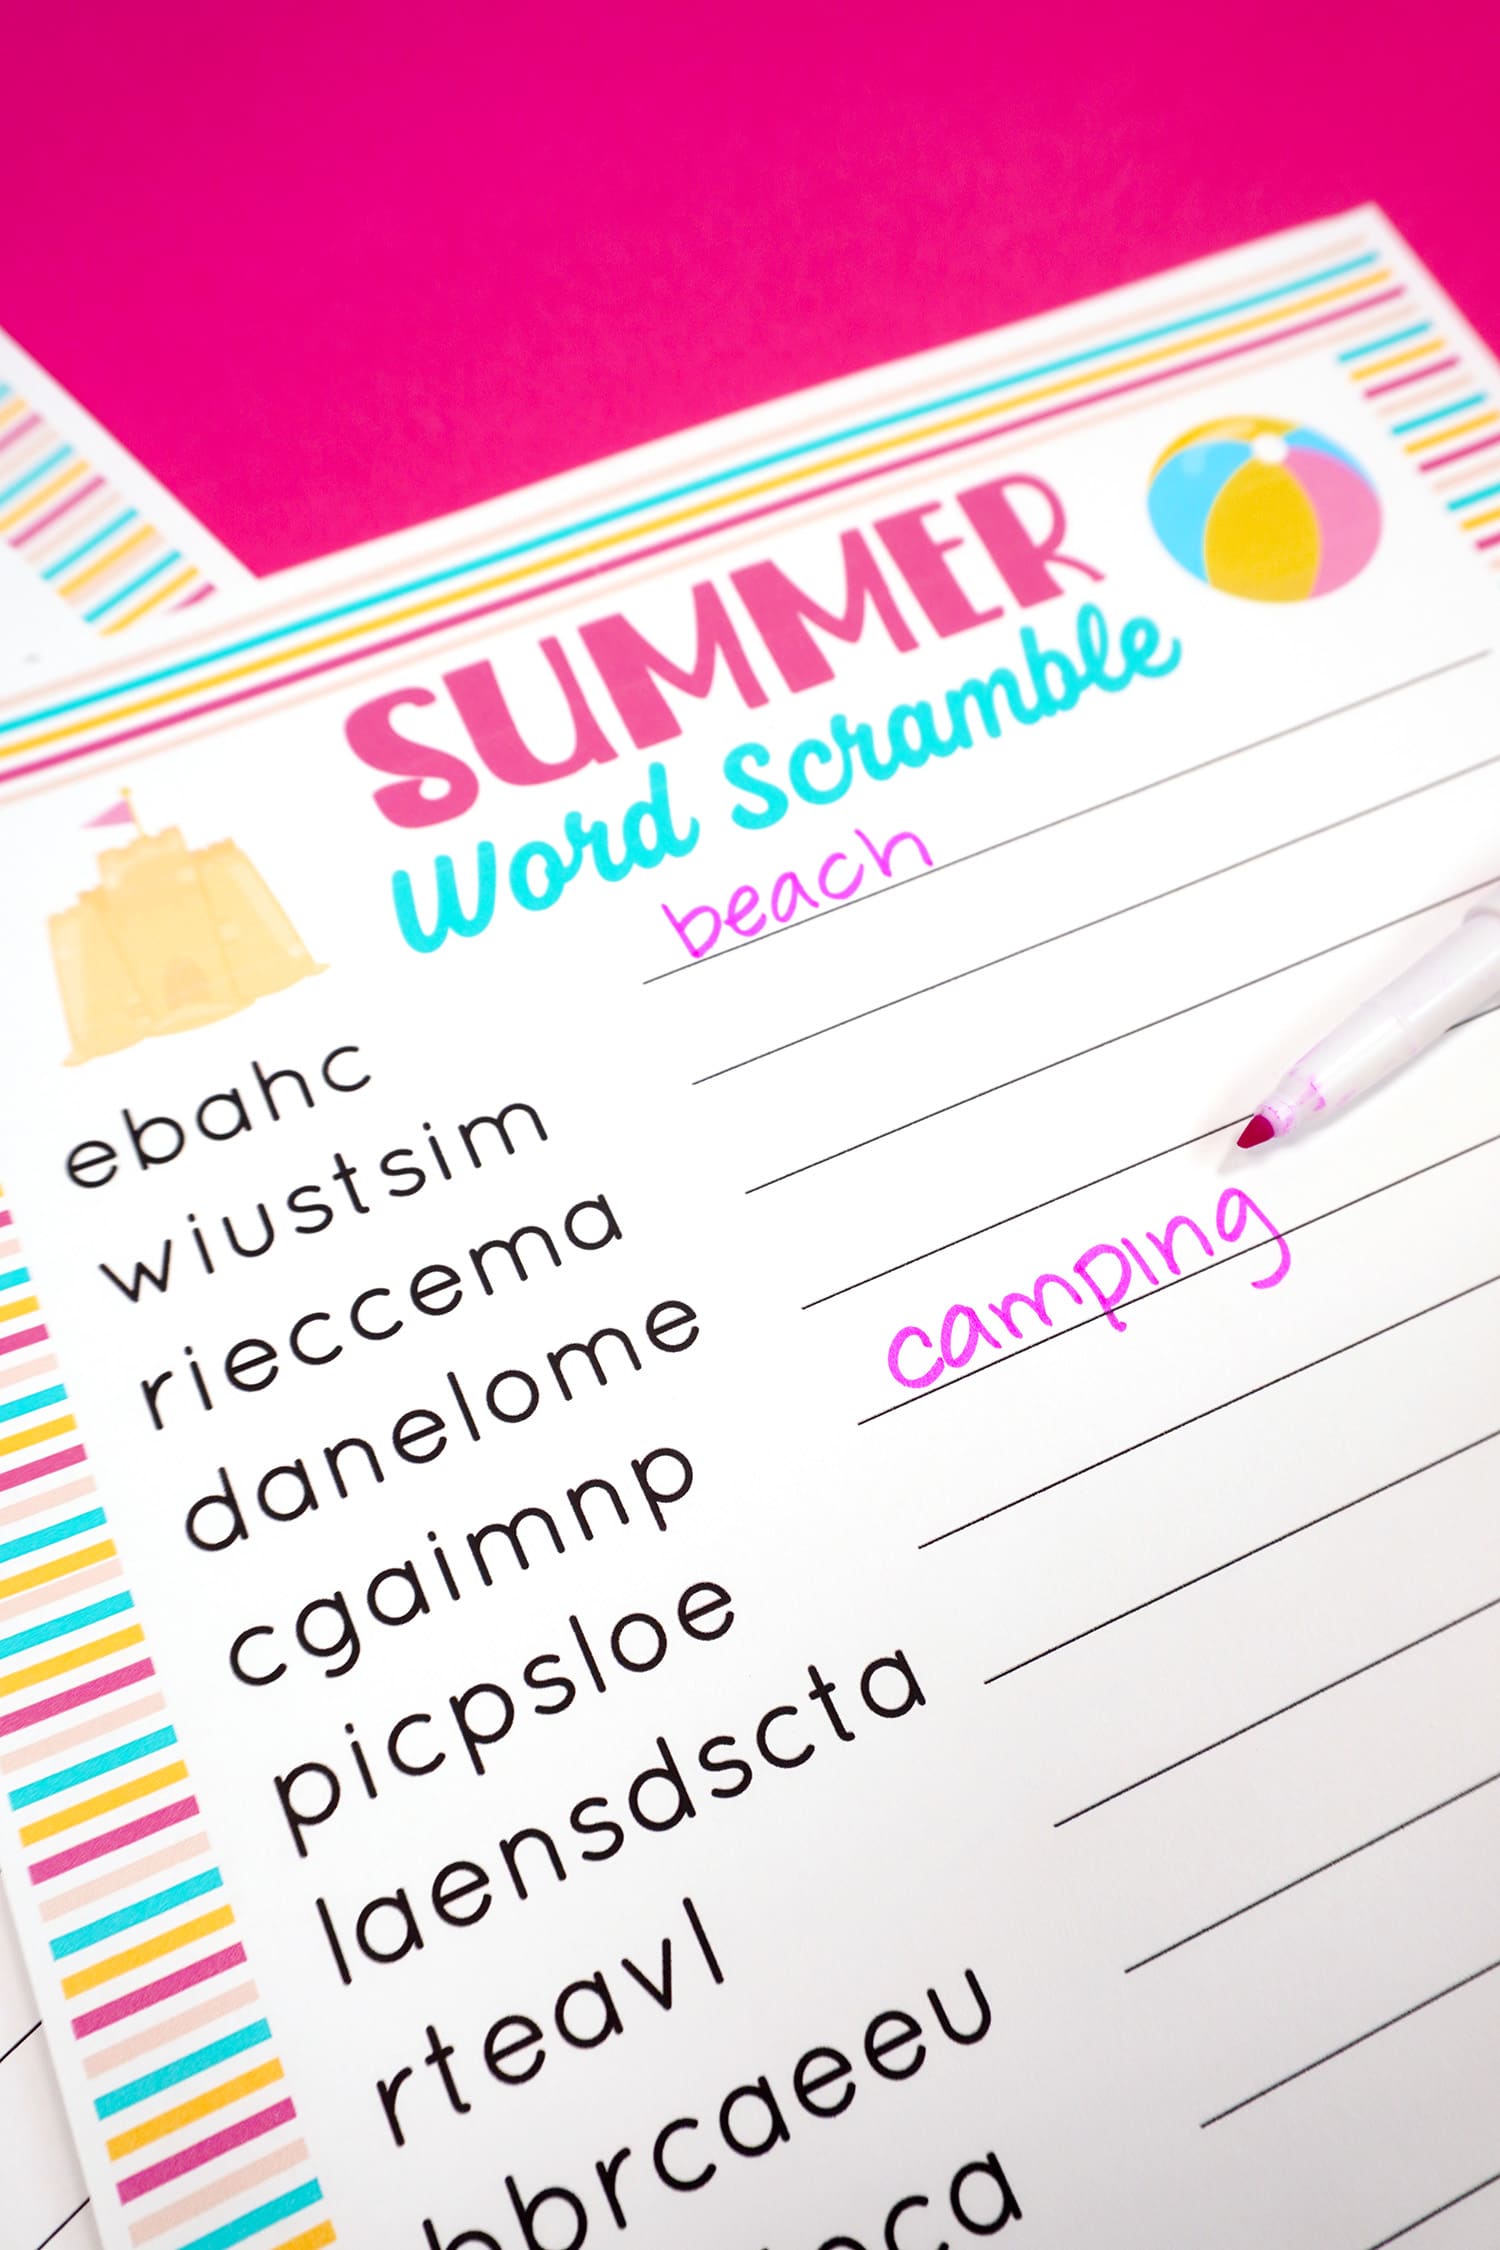 SUMMER
Word Scramble
ebahc beach
wiustsim
rieccema
danelome
cgaimnp camping
picpsloe
laensdscta
rteavl
bbrcaeeu